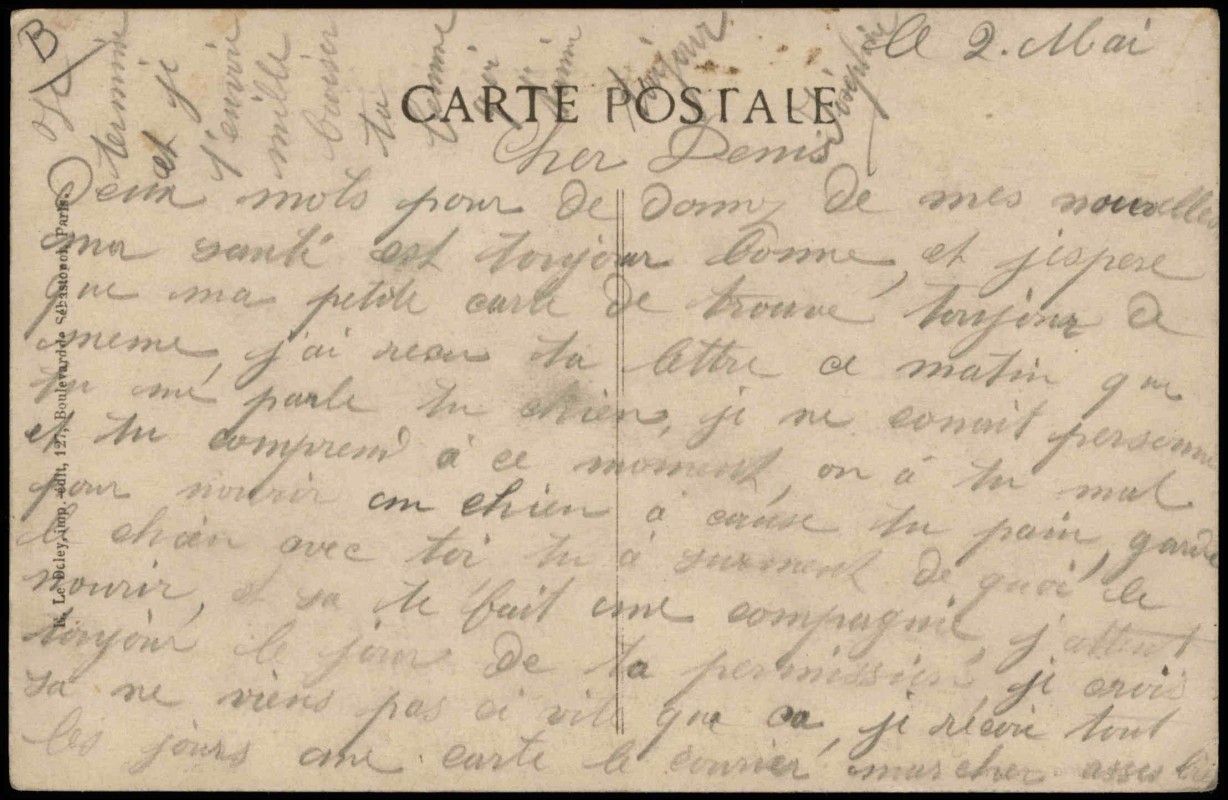 B
le 2. Mai
CARTE POSTALE
Cher Denis
Deux mots pour de donny de mes nouvelles
ma santé est toujour bonne, et j'espere
que ma petite carte de trouve toujour de
meme, j'ai recu ta lettre ce matin que
tu me parle tu chien, je ne conait personne
et tu comprend à ce moment, on à tu mal
pour nourir un chien à cause tu pain, garde
le chien avec toi tu à surment de quoi le
nourir, et sa te fait une compagnie, j'attent
toujour le jour de ta permission, je crois
sa ne viens pas ci vite que ca, je recoie tout
les jours une carte le courrier marcher asses bien
Je
termine
et je
t'envoie
mille
baiser
ta
femme
qui
t'aime
toujour
Joséphine
E. Le Deley, imp.-édit, 127, Boulevard de Sébastopol, Paris.